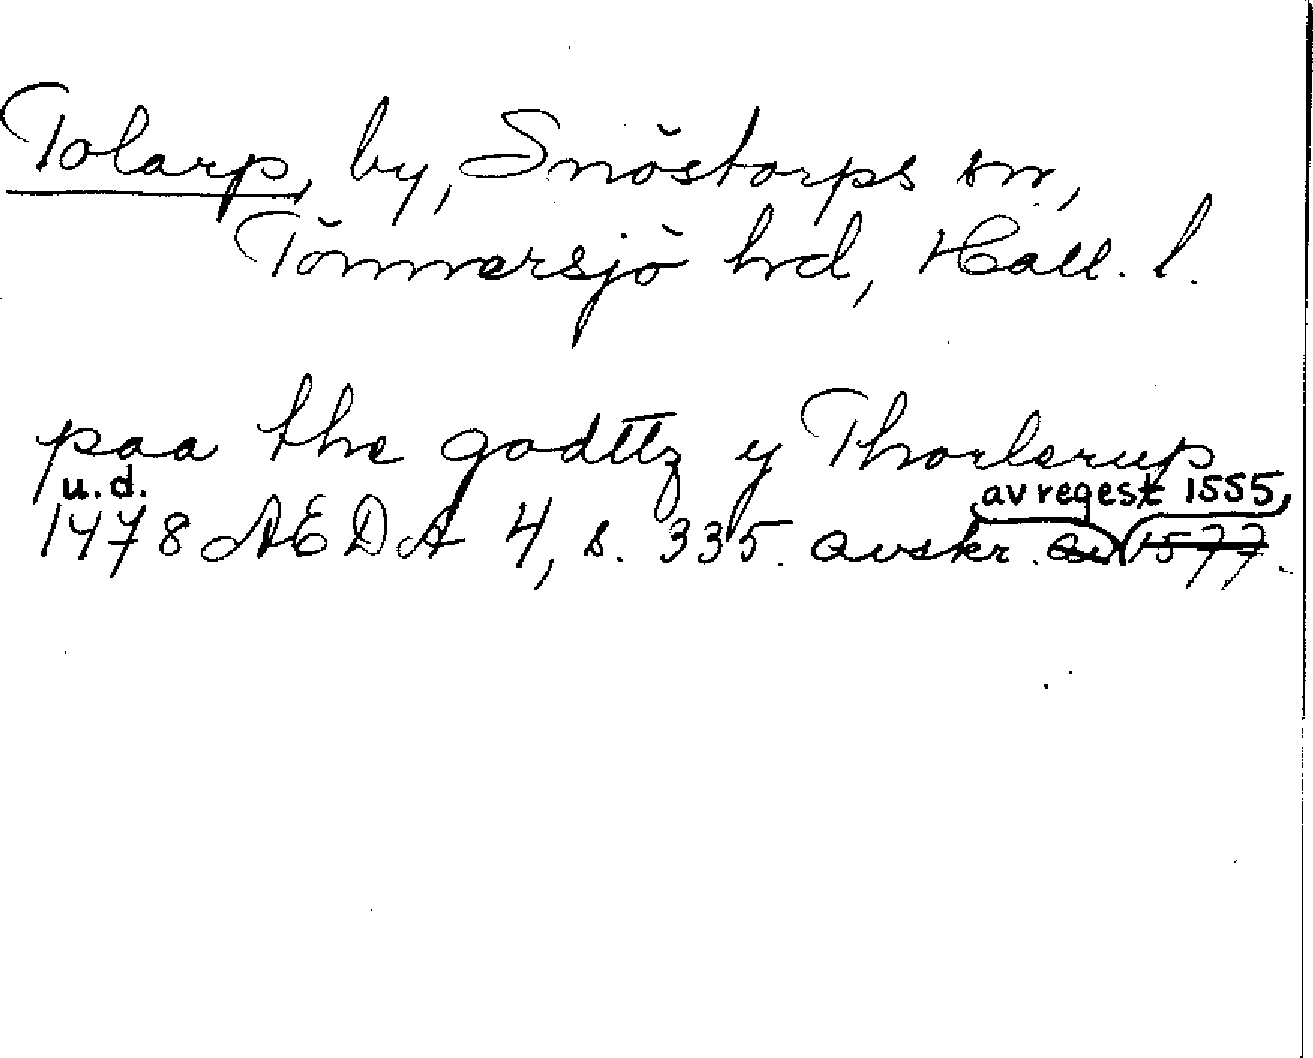 Tolarp, by, Snöstorps sn,
Tönnersjö hd, Hall. l.
paa the godttz y Thorlerup
u.d. av regest 1555,
1478 AEDA 4, s. 335. avskr. av 1577.